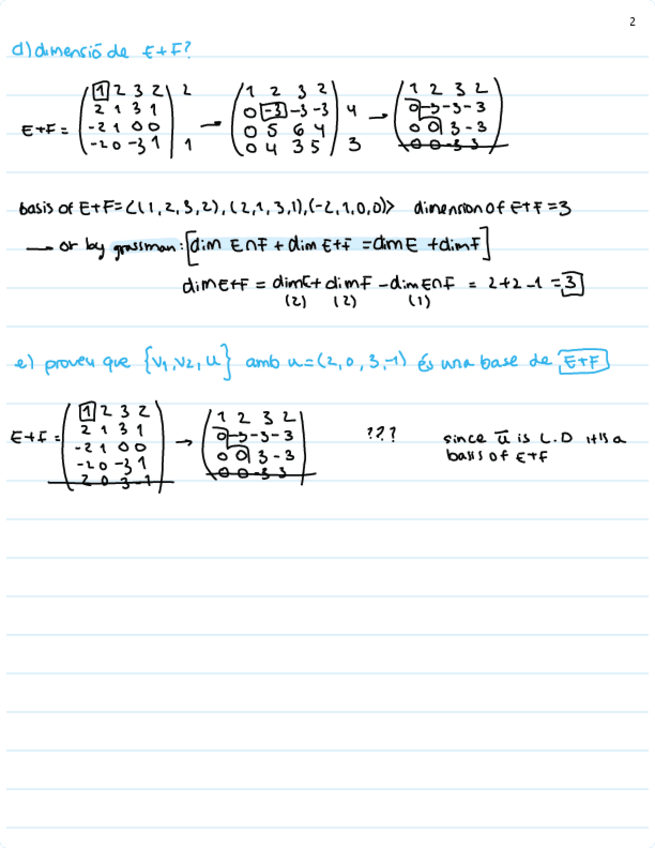 2
d) dimensió de E+F?
E+F = (1 2 3 2 | 2
2 1 3 1
-2 1 0 0
-2 0 -3 1) 1
→ (1 2 3 2
0 -3 -3 -3
0 5 6 4
0 4 3 5) 4 3
→ (1 2 3 2
0 -3 -3 -3
0 0 3 -3
0 0 -3 3)
basis of E+F = <(1, 2, 3, 2), (2, 1, 3, 1), (-2, 1, 0, 0)> dimension of E+F = 3
→ or by grassman: [dim E∩F + dim E+F = dim E + dim F]
dim E+F = dim E + dim F - dim E∩F = 2+2-1 = 3
(2) (2) (1)
e) proveu que {v1, v2, u} amb u = (2, 0, 3, -1) és una base de E+F
E+F = (1 2 3 2
2 1 3 1
-2 1 0 0
-2 0 -3 1
2 0 3 -1)
→ (1 2 3 2
0 -3 -3 -3
0 0 3 -3
0 0 -3 3)
???
since u is L.D it is a
basis of E+F